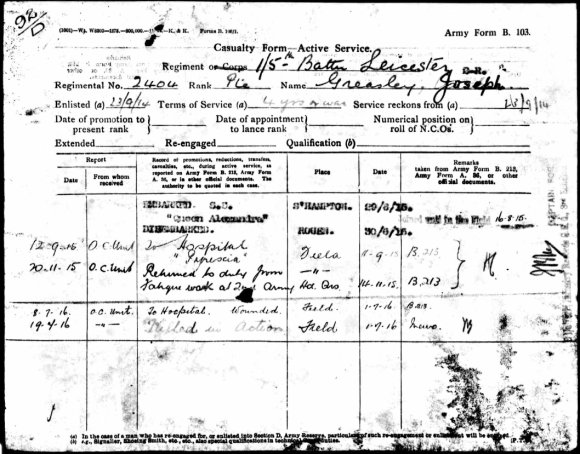 92/D
Forms B. 103/1
Army Form B. 103.
Casualty Form—Active Service.
Regiment or Corps 1/5th Battn Leicester
Regimental No. 2404 Rank Pte Name Greasley, Joseph
Enlisted (a) 23/9/14 Terms of Service (a) 4 yrs or war Service reckons from (a) 23/9/14
Date of promotion to present rank
Date of appointment to lance rank
Numerical position on roll of N.C.Os.
Extended Re-engaged Qualification (b)
Report
Date
From whom received
Record of promotions, reductions, transfers, casualties, etc., during active service, as reported on Army Form B. 213, Army Form A. 36, or in other official documents. The authority to be quoted in each case.
Place
Date
Remarks taken from Army Form B. 213, Army Form A. 36, or other official documents.
EMBARKED S.S. "Queen Alexandra" S'HAMPTON. 29/6/15.
Joined unit in the Field 16-8-15.
DISEMBARKED ROUEN. 30/6/15.
O.C. Unit To Hospital Field 11-9-15 B.213
20-11-15 O.C. Unit Returned to duty from fatigue work at 2nd Army Hd. Qrs 14-11-15. B.213
8-7-16. O.C. Unit. To Hospital. Wounded. Field. 1-7-16 B.213
19-7-16 —"— Killed in Action Field 1-7-16
(a) In the case of a man who has re-engaged for, or enlisted into Section D, Army Reserve, particulars of such re-engagement or enlistment will be entered.
(b) e.g., Signaller, Shoeing Smith, etc., etc., also special qualifications in technical Corps duties. (P.T.O.